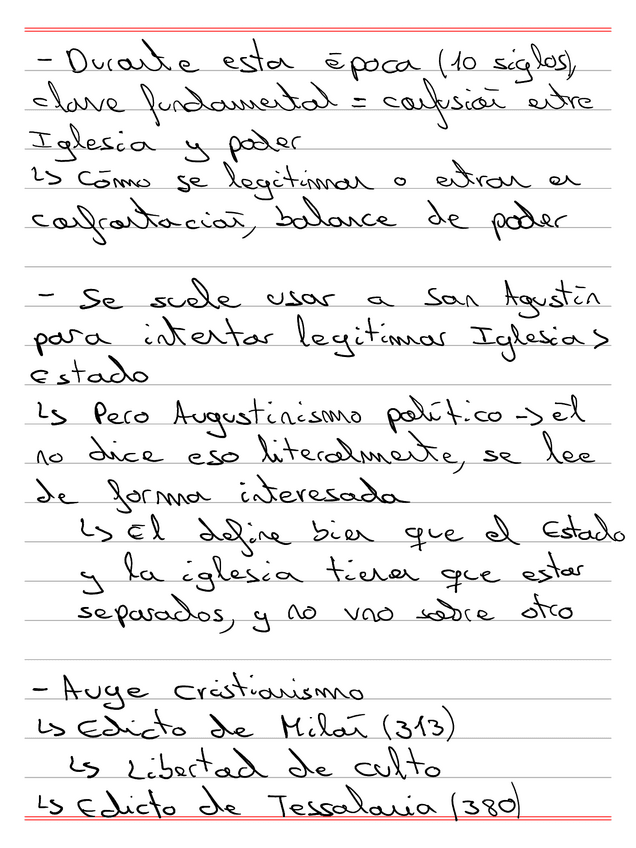 - Durante esta época (10 siglos),
clave fundamental = confusión entre
Iglesia y poder
↳ Cómo se legitiman o entran en
confrontación, balance de poder
- Se suele usar a San Agustín
para intentar legitimar Iglesia >
Estado
↳ Pero Augustinismo político → él
no dice eso literalmente, se lee
de forma interesada
↳ Él define bien que el Estado
y la iglesia tienen que estar
separados, y no uno sobre otro
- Auge cristianismo
↳ Edicto de Milán (313)
↳ Libertad de culto
↳ Edicto de Tessalonia (380)